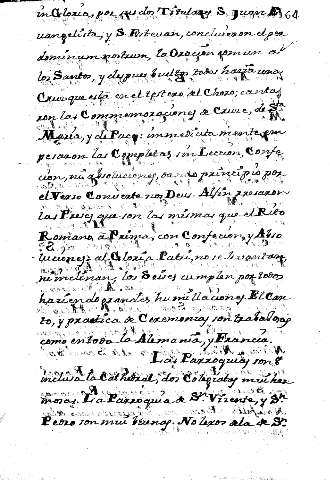 in Gloria, por ser dos Titulares S. Juan E- 164
vangelista, y S. Estevan, concluieron el per
dominum nostrum, la Oracion comun a
los Santos, y despues bueltos todos hazia una
Cruz que està en el testero del Choro; canta-
ron las Commemoraciones de Cruz, de Sta
Maria, y de Pace: immediatamente em-
pesaron las Completas sin Leccion, Confe-
cion, ni absoluciones, dando principio por
el Verso Converte nos Deus. Al fin resaron
las Preses que son las mismas que el Rito
Romano à Prima, con Confecion, y Abso
luciones: al Gloria Patri, no se levantan,
ni inclinan; los Señores cumplen por todos
haziendo grandes humillaciones. El Can-
to, y practica de Ceremonias son trabajosas
como en toda la Alemania, y Francia.
Las Parroquias son 8
inclusa la Cathedral, dos Colegiatas mui her
mosas. La Parroquia de Sn Vicente, y Sn
Pedro son mui buenas. No lexos de la de Sn